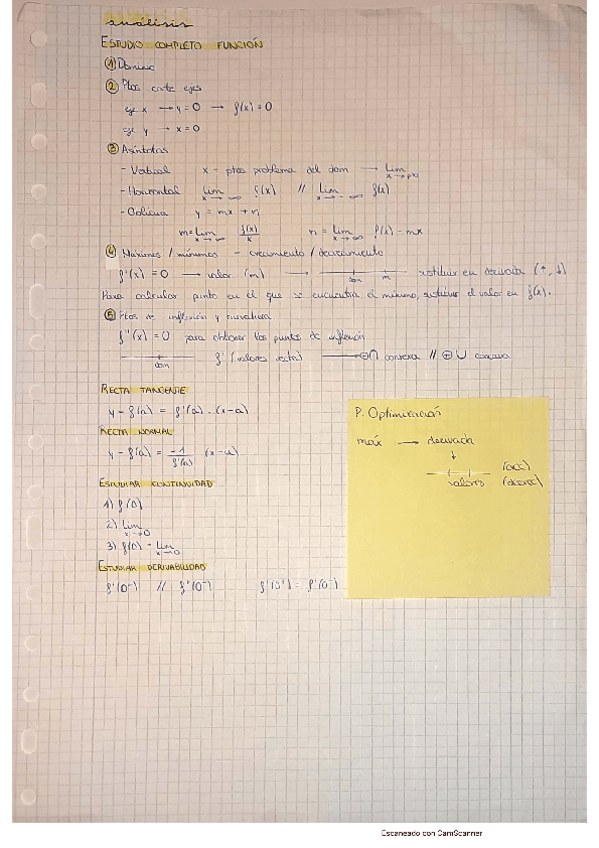 análisis
ESTUDIO COMPLETO FUNCIÓN
① Dominio
② Ptos corte ejes
eje x → y = 0 → f(x) = 0
eje y → x = 0
③ Asíntotas
- Vertical x = ptos problema del dom → lim x→pto
- Horizontal lim x→∞ f(x) // lim x→-∞ f(x)
- Oblicua y = mx + n
m = lim x→∞ f(x)/x n = lim x→∞ f(x) - mx
④ Máximos / mínimos - crecimiento / decrecimiento
f'(x) = 0 → valor (m) → dom m sustituir en derivada (↑, ↓)
Para calcular punto en el que se encuentra el mínimo, sustituir el valor en f(x).
⑤ Ptos de inflexión y curvatura
f''(x) = 0 para obtener los puntos de inflexión
dom f' (valores recta) → ⊖∩ convexa // ⊕∪ concava
RECTA TANGENTE
y - f(a) = f'(a) · (x-a)
RECTA NORMAL
y - f(a) = -1/f'(a) (x-a)
ESTUDIAR CONTINUIDAD
1) f(0)
2) lim x→0
3) f(0) = lim x→0
ESTUDIAR DERIVABILIDAD
f'(0⁻) // f'(0⁻) f'(0⁺) = f'(0⁻)
P. Optimización
máx → derivada
↓
valores (decrec)
Escaneado con CamScanner